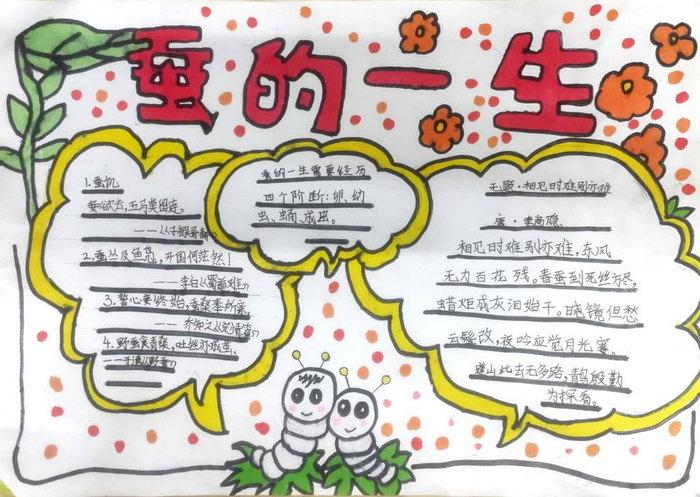 蚕的一生
1.蚕饥
妾欲去,五马莫留连。
2.蚕丛及鱼凫,开国何茫然!
——李白《蜀道难》
3.誓心妾终始,蚕桑奉所亲。
4.野蚕食青桑,吐丝亦成茧。
——于濆《野蚕》
蚕的一生需要经历
四个阶断:卵、幼
虫、蛹、成虫。
无题·相见时难别亦难
唐·李商隐
相见时难别亦难,东风
无力百花残。春蚕到死丝方尽,
蜡炬成灰泪始干。晓镜但愁
云鬓改,夜吟应觉月光寒。
蓬山此去无多路,青鸟殷勤
为探看。